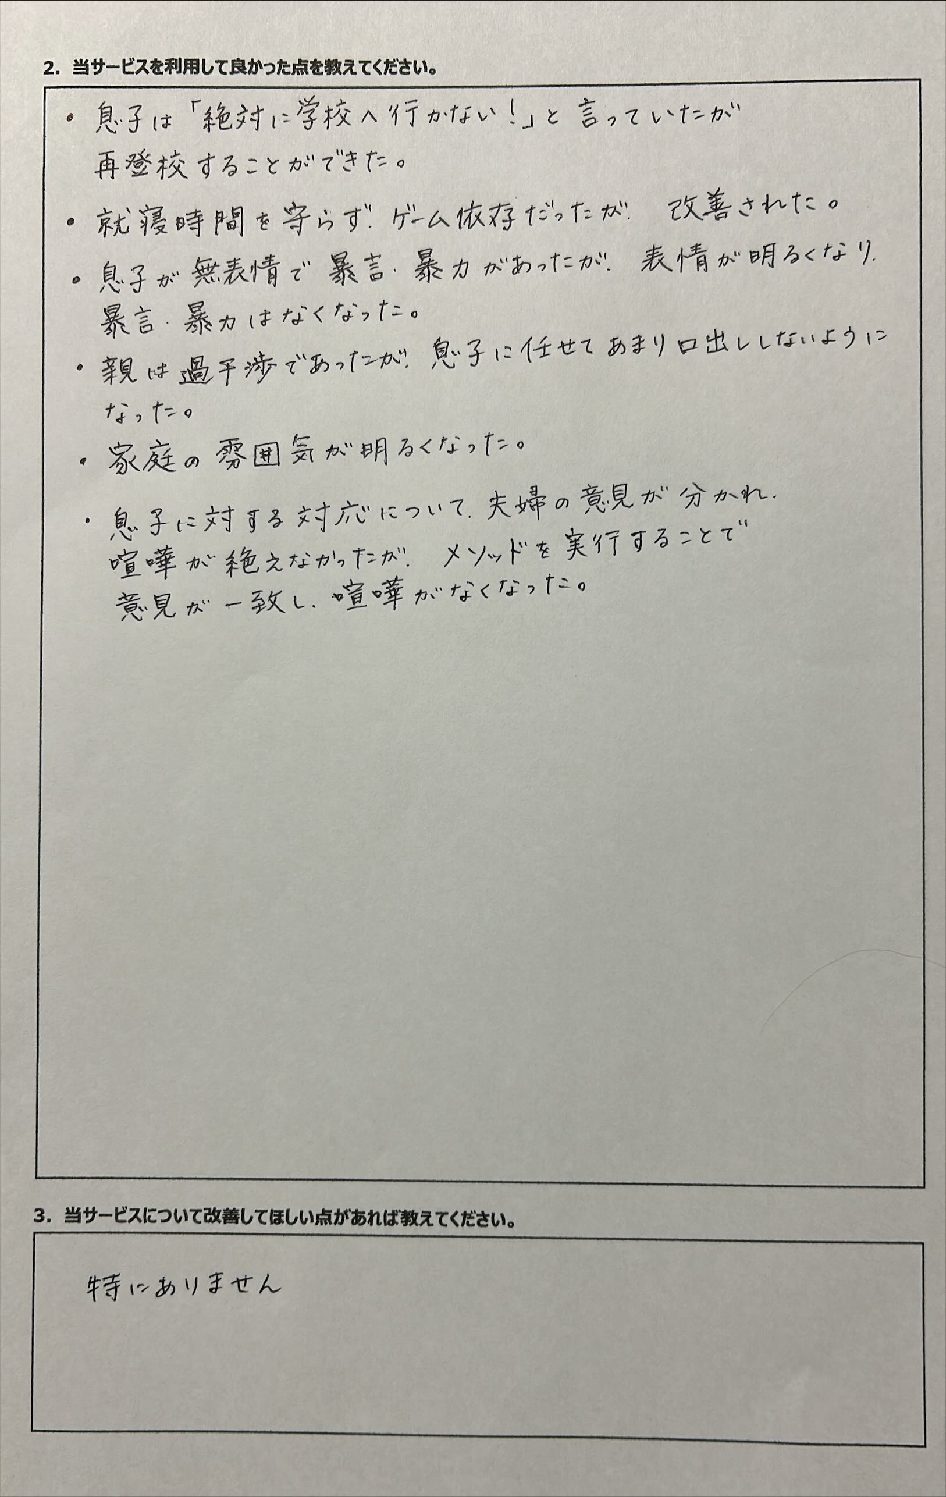 2. 当サービスを利用して良かった点を教えてください。
・息子は「絶対に学校へ行かない!」と言っていたが
再登校することができた。
・就寝時間を守らず、ゲーム依存だったが、改善された。
・息子が無表情で暴言・暴力があったが、表情が明るくなり、
暴言・暴力はなくなった。
・親は過干渉であったが、息子に任せてあまり口出ししないように
なった。
・家庭の雰囲気が明るくなった。
・息子に対する対応について、夫婦の意見が分かれ、
喧嘩が絶えなかったが、メソッドを実行することで
意見が一致し、喧嘩がなくなった。
3. 当サービスについて改善してほしい点があれば教えてください。
特にありません